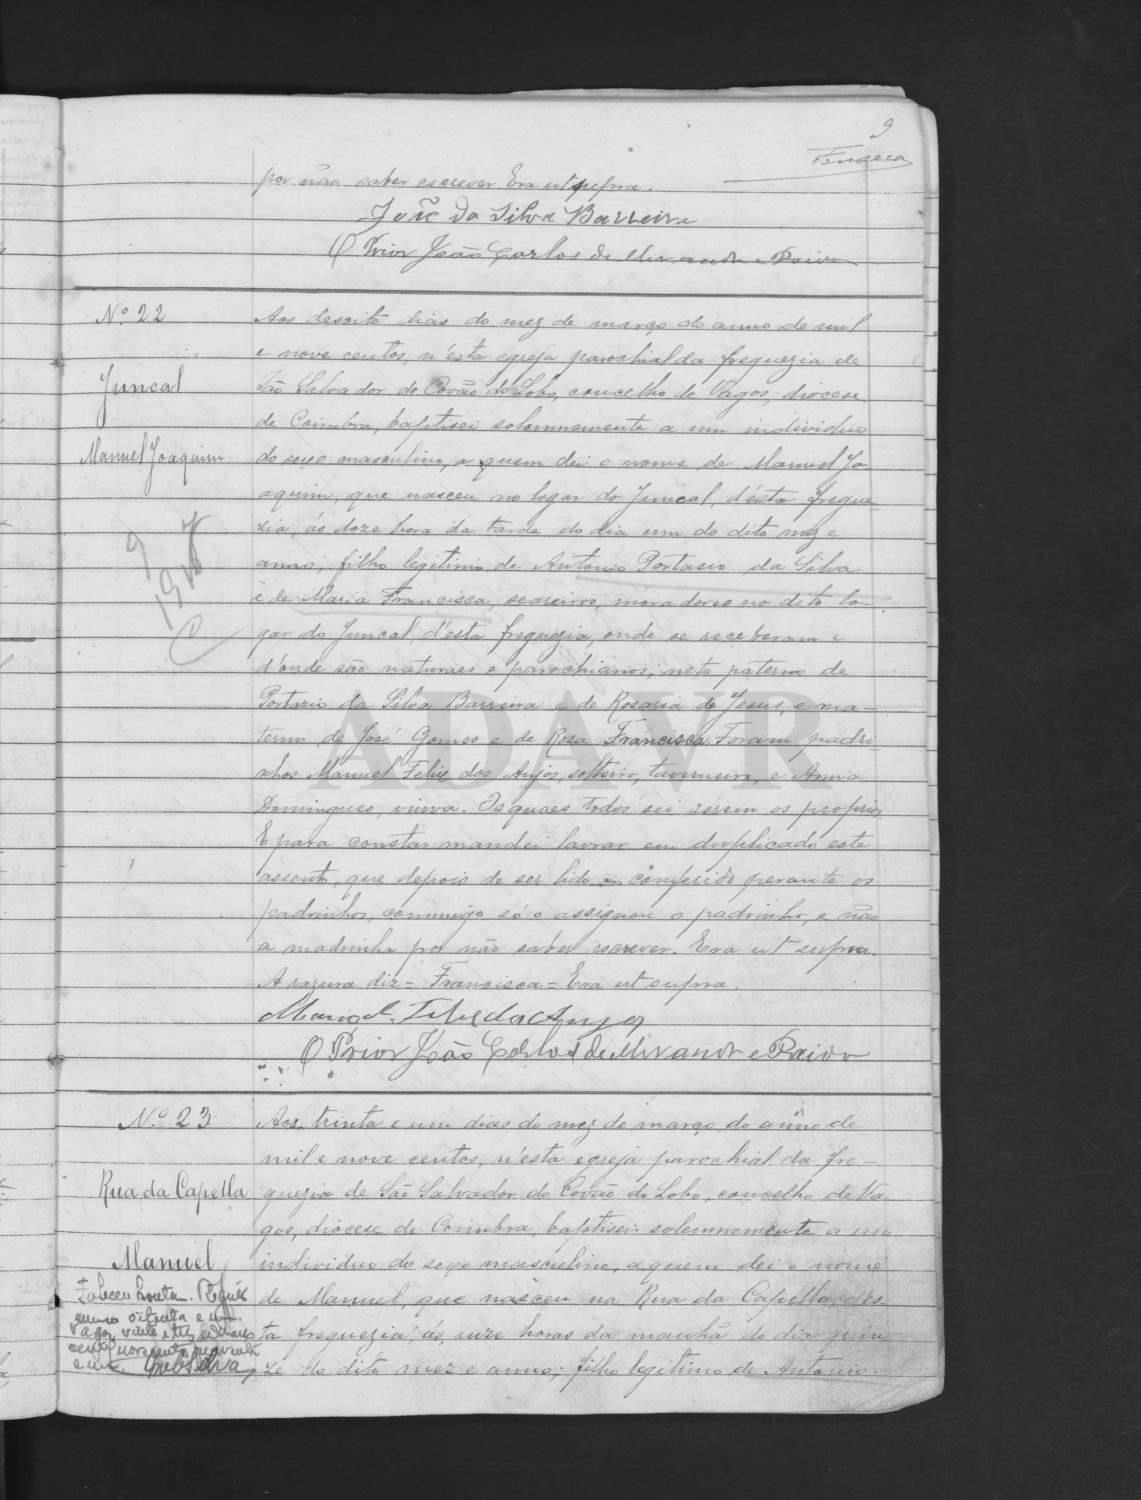 9
Fonseca
por não saber escrever. Era ut supra.
João da Silva Barreira
O Prior João Carlos de e Paiva
Nº 22
Juncal
Manuel Joaquim
Aos desoito dias do mez de março do anno de mil
e nove centos, n'esta egreja parochial da freguezia de
São Salvador do Covão do Lobo, concelho de Vagos, diocese
de Coimbra, baptisei solemnemente a um individuo
do sexo masculino, a quem dei o nome de Manuel Jo-
aquim, que nasceu no logar do Juncal, d'esta fregue-
zia, ás doze hora da tarde do dia um do dito mez e
anno, filho legitimo de Antonio Portasio da Silva
e de Maria Francisca, seareiros, moradores no dito lo-
gar do Juncal, d'esta freguezia, onde se receberam e
d'onde são naturaes e parochianos; neto paterno de
Portazio da Silva Barreira e de Rosaria de Jesus, e ma-
terno de José Gomes e de Rosa Francisca. Foram padri-
nhos Manuel Felix dos Anjos, solteiro, taverneiro, e Anna
Domingues, viuva. Os quaes todos sei serem os proprios.
E para constar mandei lavrar em duplicado este
assento, que depois de ser lido e conferido perante os
padrinhos, commigo só o assignou o padrinho, e não
a madrinha por não saber escrever. Era ut supra.
A razura diz = Francisca = Era ut supra.
Manoel Felix dos Anjos
O Prior João Carlos de e Paiva
Nº 23
Rua da Capella
Manuel
Aos trinta e um dias do mez de março do anno de
mil e nove centos, n'esta egreja parochial da fre-
guezia de São Salvador do Covão do Lobo, concelho de Va-
gos, diocese de Coimbra, baptisei solemnemente a um
individuo do sexo masculino, a quem dei o nome
de Manuel, que nasceu na Rua da Capella, d'es-
ta freguezia, ás onze horas da manhã do dia quin-
ze do dito mez e anno; filho legitimo de Antonio
ADAVR